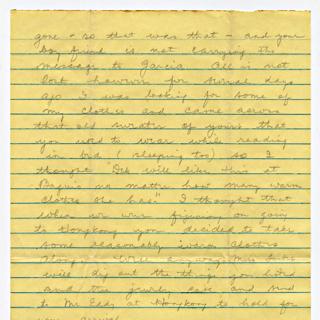 gone - so that was that - and your
boy friend is not carrying the
message to Garcia. All is not
lost however for several days
ago I was looking for some of
my clothes and came across
that old sweater of yours that
you used to wear while reading
in bed (sleeping too) so I
thought "Deb will like this at
Baguio no matter how many warm
clothes she has". I thought that
when we were figuring on going
to Hongkong you decided to take
some reasonably warm clothes
along. Well anyway Miss
will dig out the things you listed
and the jewelry case and send
to Mr Eads at Hongkong to hold for
your arrival